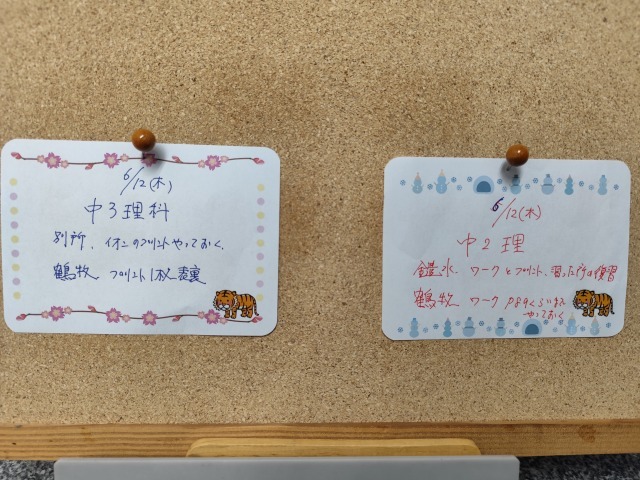 6/12(木)
中3理科
別所、イオンのプリントやっておく、
鶴牧 プリント1枚表裏
6/12(木)
中2理
鑓水 ワークとプリント、習った所の復習
鶴牧 ワーク P89くらいまで
やっておく